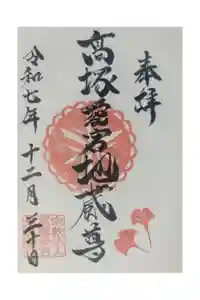 奉拝
高塚愛宕地蔵尊
令和七年 十二月 三十日